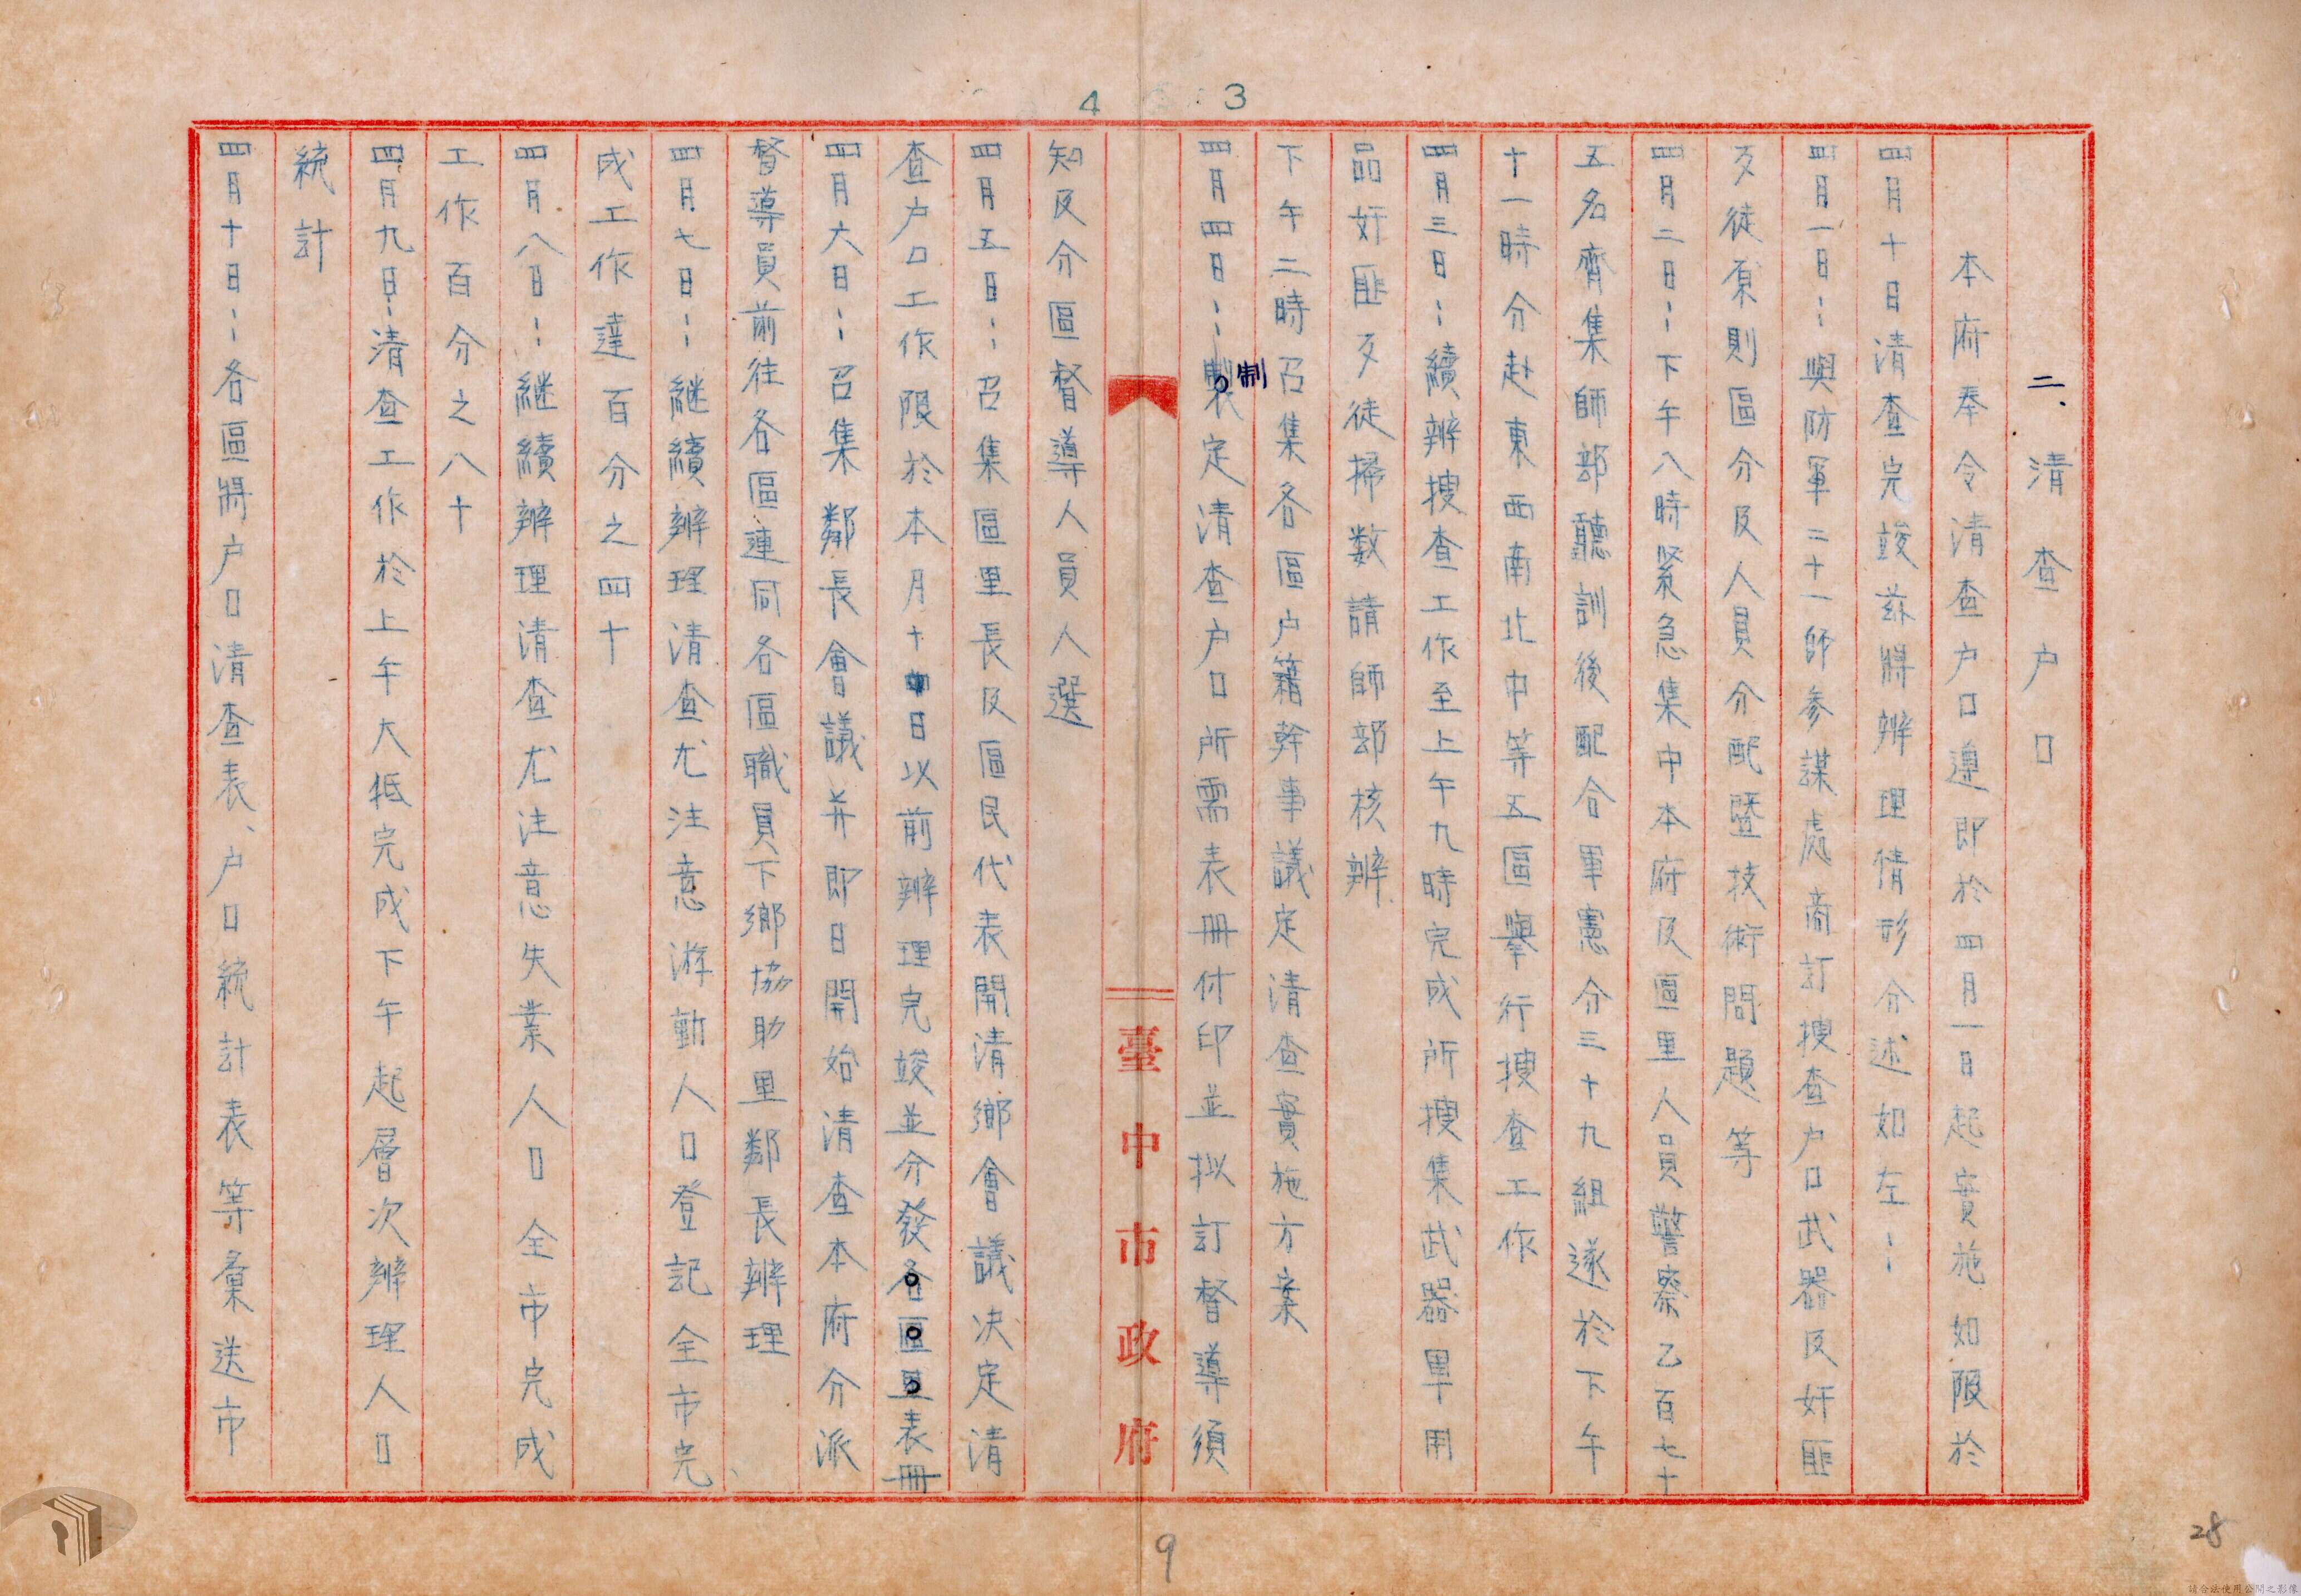 3
4
二、清查户口
本府奉令清查户口遵即於四月一日起實施如限於
四月十日清查完竣茲將辦理情形分述如左：
四月一日：與防軍二十一師參謀處商訂搜查户口武器及奸匪
歹徒原則區分及人員分配暨技術問題等
四月二日：下午八時緊急集中本府及區里人員警察乙百七十
五名齊集師部聽訓後配合軍憲分三十九組遂於下午
十一時分赴東西南北中等五區舉行搜查工作
四月三日：續辦搜查工作至上午九時完成所搜集武器軍用
品奸匪歹徒掃数請師部核辦
下午二時召集各區户籍幹事議定清查實施方案
四月四日：制定清查户口所需表冊付印並拟訂督導須
臺中市政府
知及分區督導人員人選
四月五日：召集區里長及區民代表開清鄉會議決定清
查户口工作限於本月十日以前辦理完竣並分發各區里表冊
四月六日：召集鄰長會議并即日開始清查本府分派
督導員前往各區連同各區職員下鄉協助里鄰長辦理
四月七日：継續辦理清查尤注意游動人口登記全市完
成工作達百分之四十
四月八日：継續辦理清查尤注意失業人口全市完成
工作百分之八十
四月九日：清查工作於上午大抵完成下午起層次辦理人口
統計
四月十日：各區將户口清查表、户口統計表等彙送市
9
28
請合法使用公開之影像